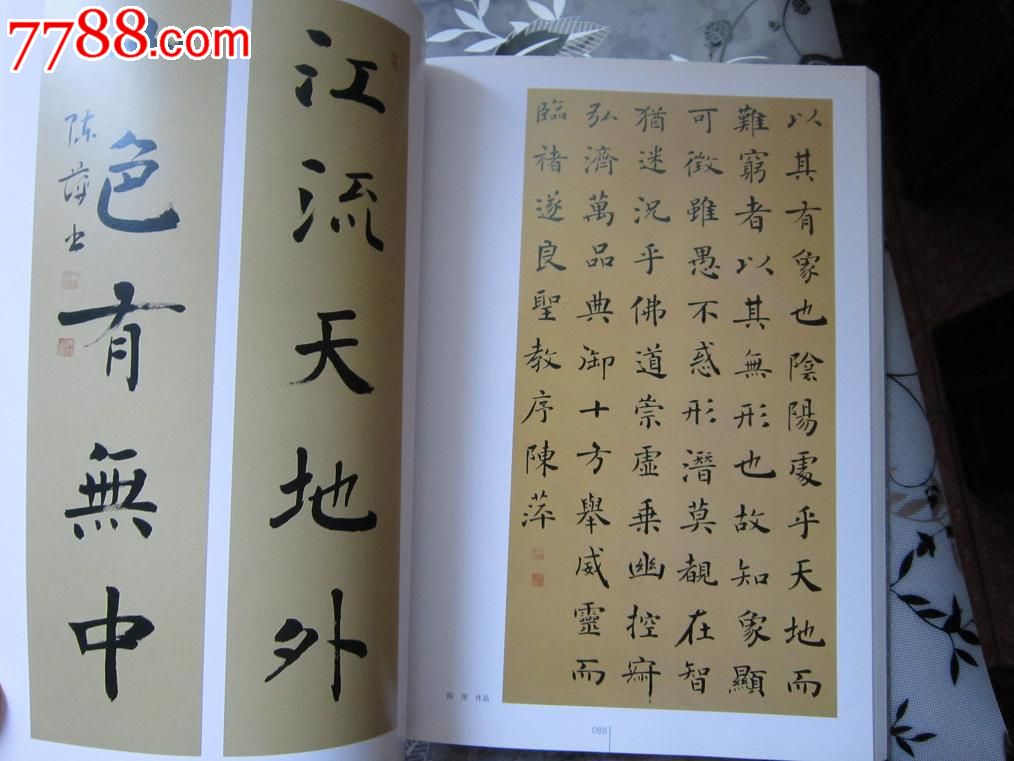 7788.com
江流天地外
色有無中
陈萍书
以其有象也陰陽處乎天地而
難窮者以其無形也故知象顯
可徵雖愚不惑形潛莫覩在智
猶迷況乎佛道崇虛乘幽控寂
弘濟萬品典御十方舉威靈而
臨褚遂良聖教序陳萍
陈 萍 作品
088